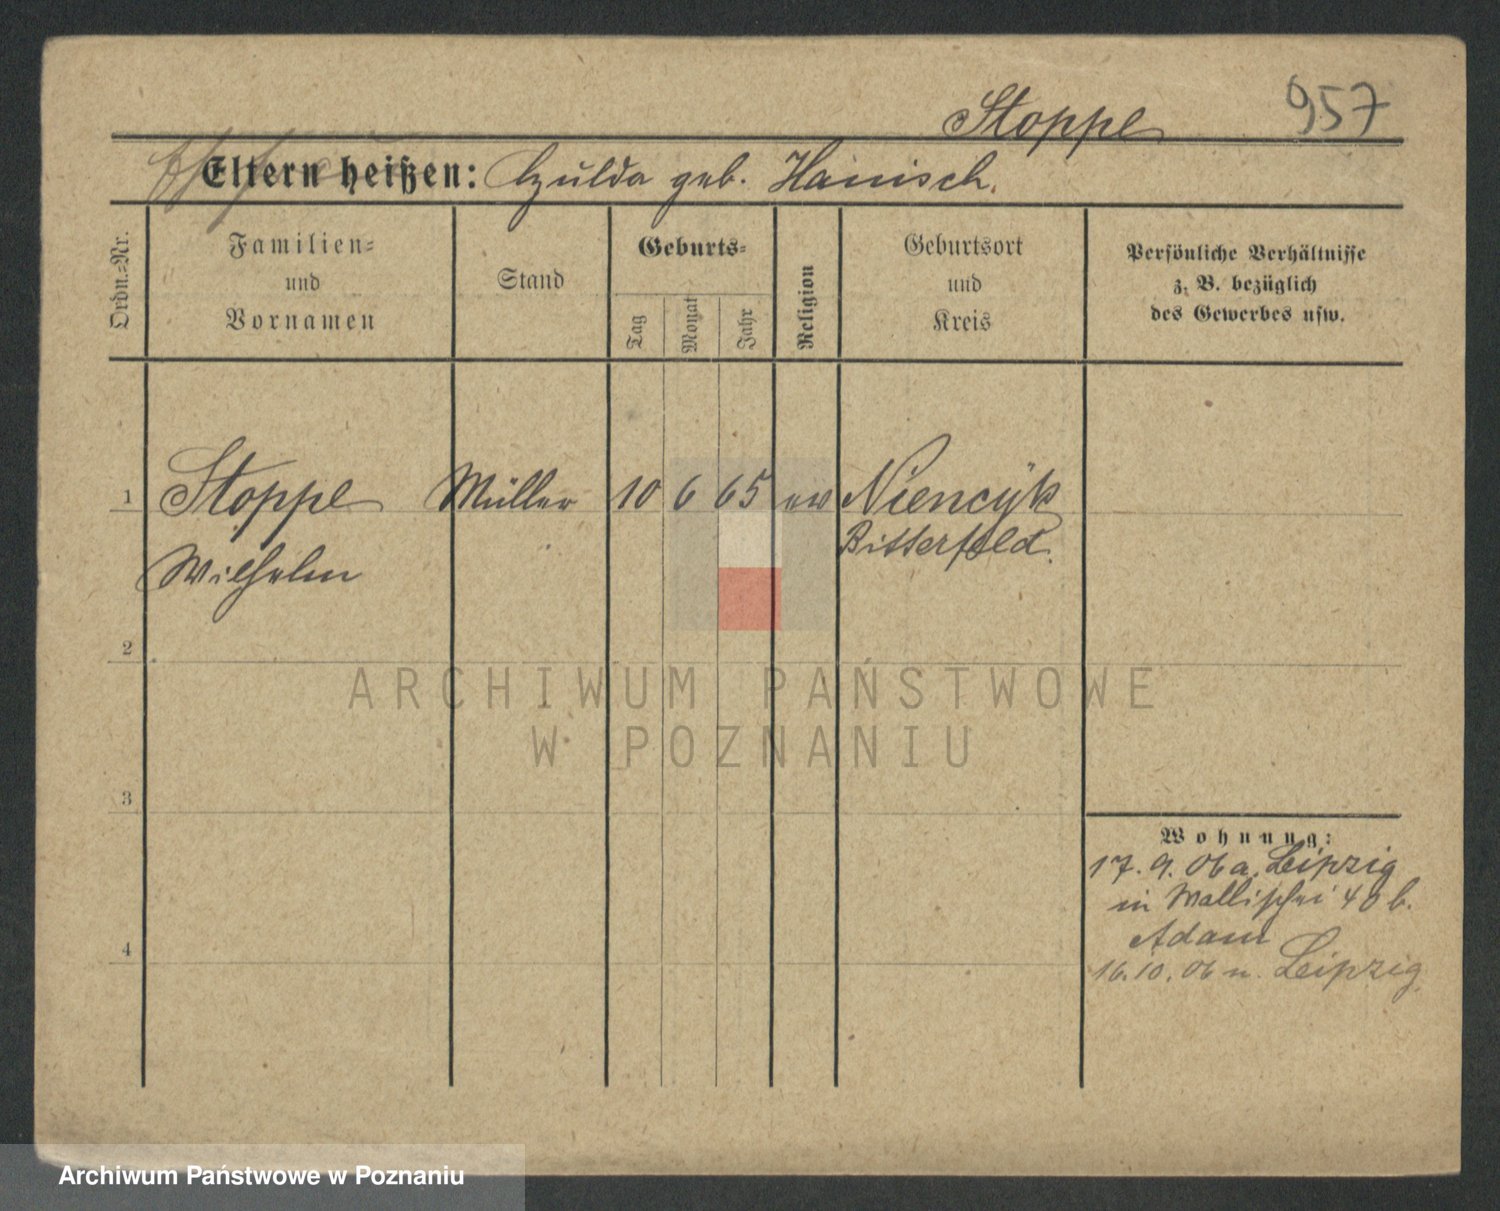 Stoppe 957
Eltern heißen: Hulda geb. Hänisch.
Ordn.-Nr.
Familien-
und
Vornamen
Stand
Geburts-
Tag
Monat
Jahr
Religion
Geburtsort
und
Kreis
Persönliche Verhältnisse
z. B. bezüglich
des Gewerbes usw.
1 Stoppe Müller 10 6 65 ev Niencÿk
Wilhelm Bitterfeld.
2
3
4
Wohnung:
17. 9. 06 a. Leipzig
in Wallischei 40 b.
Adam
16. 10. 06 n. Leipzig
ARCHIWUM PAŃSTWOWE
W POZNANIU
Archiwum Państwowe w Poznaniu